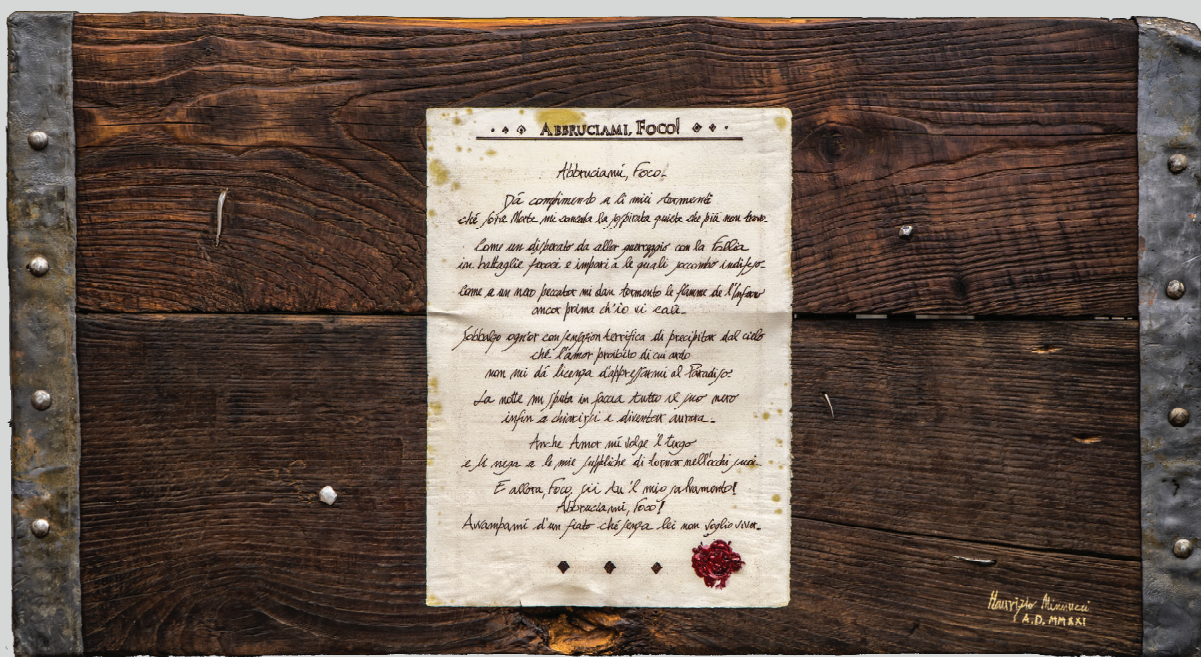 ABBRUCIAMI, FOCO!
Abbruciami, Foco!
Dá compimento a li miei tormenti
ché sora Morte mi conceda la sospirata quiete che piá non trovo.
Come un disperato da allor guerreggio con la Follia
in battaglie feroci e impari a le quali soccombo indifeso.
Come a un nero peccator mi dan tormento le fiamme de l'Inferno
ancor prima ch'io vi cali.
Sobbalzo ognor con sensazion terrifica di precipitar dal cielo
ché l'amor proibito di cui ardo
non mi dá licenza d'appressarmi al Paradiso.
La notte mi sputa in faccia tutto il suo nero
infin a chiarirsi e diventar aurora.
Anche Amor mi volge 'l tergo
e si nega a le mie suppliche di tornar nell'occhi suoi.
E allora, Foco, sii tu 'l mio salvamento!
Abbruciami, Foco!
Avvampami d'un fiato ché senza lei non voglio viver.
Maurizio Minnucci
A.D. MMXXI